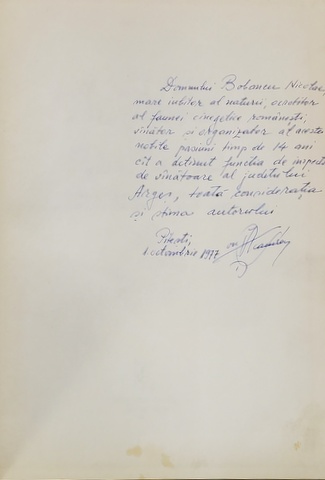 Domnului Bobancu Nicolae,
mare iubitor al naturii, ocrotitor
al faunei cinegetice românești,
vînător și organizator al acestei
nobile pasiuni timp de 14 ani
cît a deținut funcția de inspector
de vînătoare al județului
Argeș, toată considerația
și stima autorului
Pitești,
1 octombrie 1977